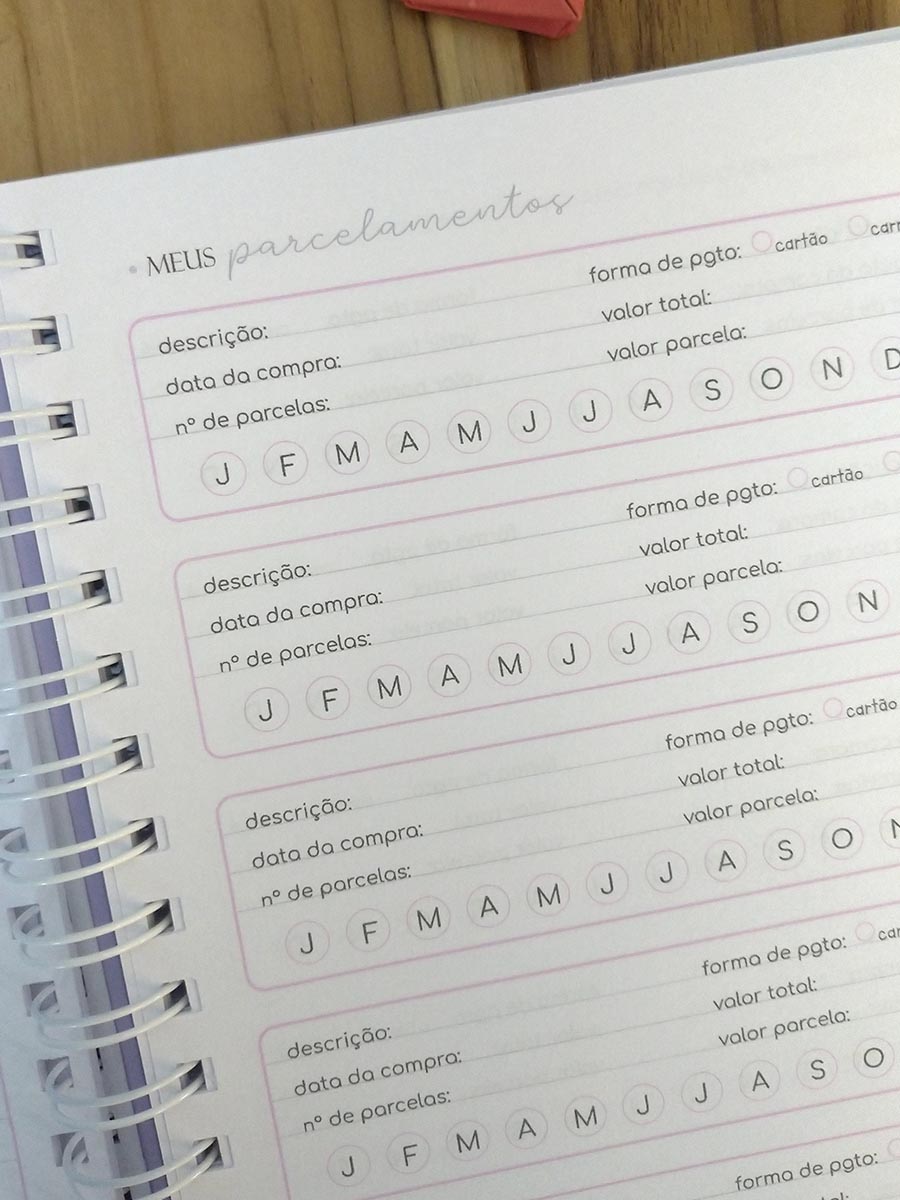 • MEUS parcelamentos
descrição: forma de pgto: cartão
data da compra: valor total:
nº de parcelas: valor parcela:
J F M A M J J A S O N D
descrição: forma de pgto: cartão
data da compra: valor total:
nº de parcelas: valor parcela:
J F M A M J J A S O N
descrição: forma de pgto: cartão
data da compra: valor total:
nº de parcelas: valor parcela:
J F M A M J J A S O N
descrição: forma de pgto:
data da compra: valor total:
nº de parcelas: valor parcela:
J F M A M J J A S O
forma de pgto: